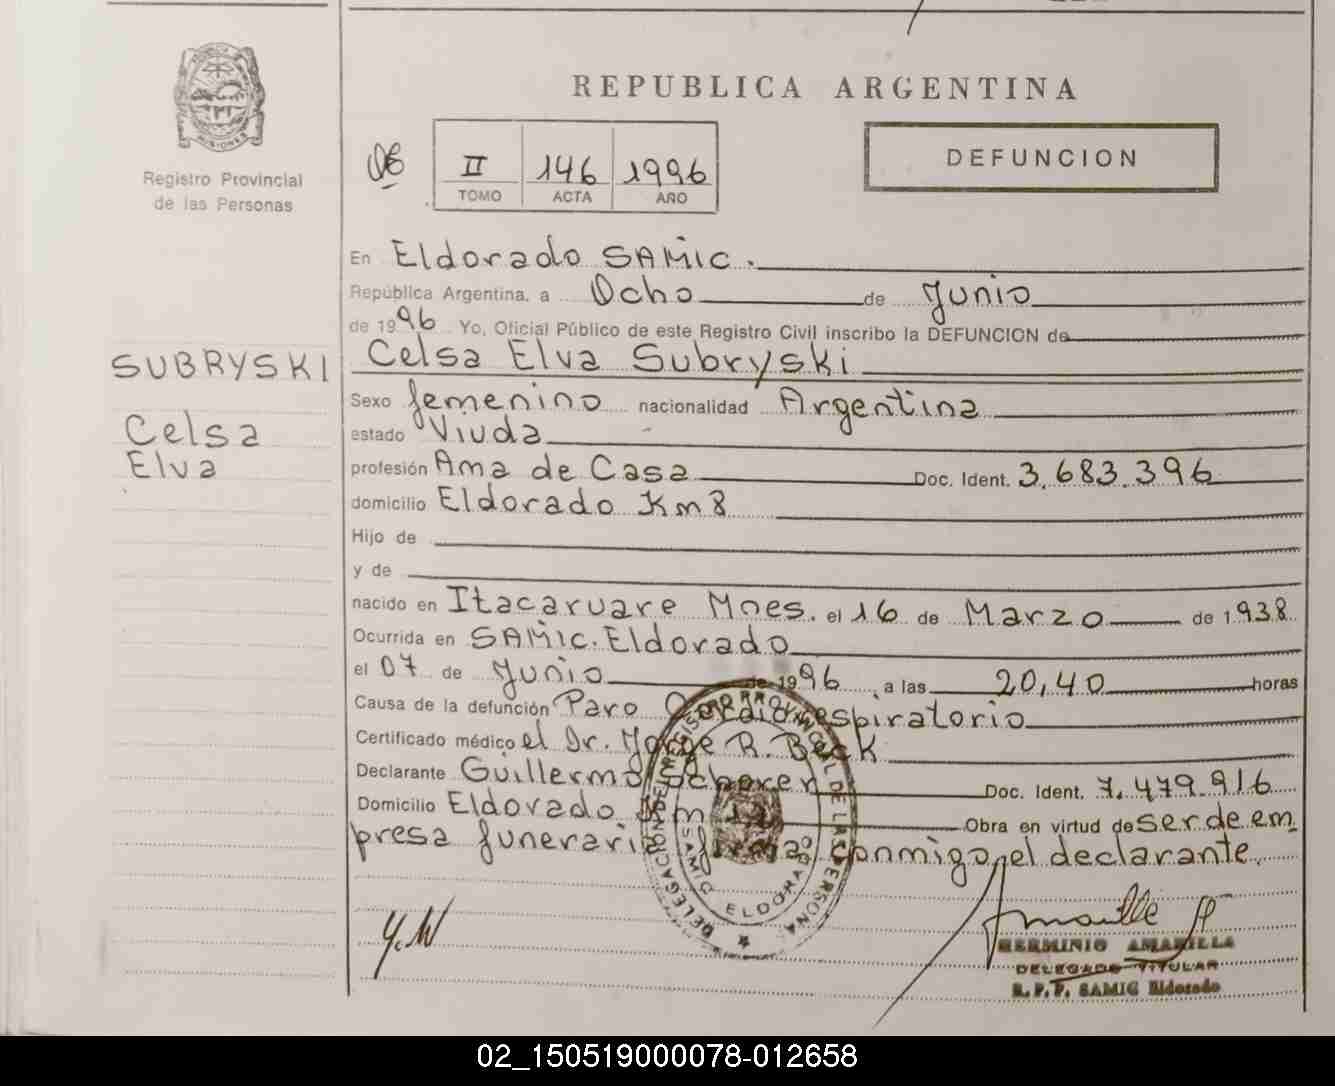 REPUBLICA ARGENTINA
MISIONES
Registro Provincial
de las Personas
II 146 1996
TOMO ACTA AÑO
DEFUNCION
En Eldorado SAMIC.
República Argentina, a Ocho de Junio
de 1996 Yo, Oficial Público de este Registro Civil inscribo la DEFUNCION de
SUBRYSKI
Celsa
Elva
Celsa Elva Subryski
Sexo femenino nacionalidad Argentina
estado Viuda
profesión Ama de Casa Doc. Ident. 3.683.396
domicilio Eldorado Km 8
Hijo de
y de
nacido en Itacaruare Mnes. el 16 de Marzo de 1938
Ocurrida en SAMIC. Eldorado
el 07 de Junio de 1996, a las 20,40 horas
Causa de la defunción Paro Cardiorespiratorio
Certificado médico el Dr. Jorge R. Beck
Declarante Guillermo Scherer Doc. Ident. 7.479.916
Domicilio Eldorado Km Obra en virtud de ser de em
presa funeraria firma conmigo el declarante
DELEGACION DEL REGISTRO PROVINCIAL DE LAS PERSONAS
SAMIC ELDORADO
HERMINIO AMARILLA
DELEGADO TITULAR
R. P. P. SAMIC Eldorado
02_150519000078-012658